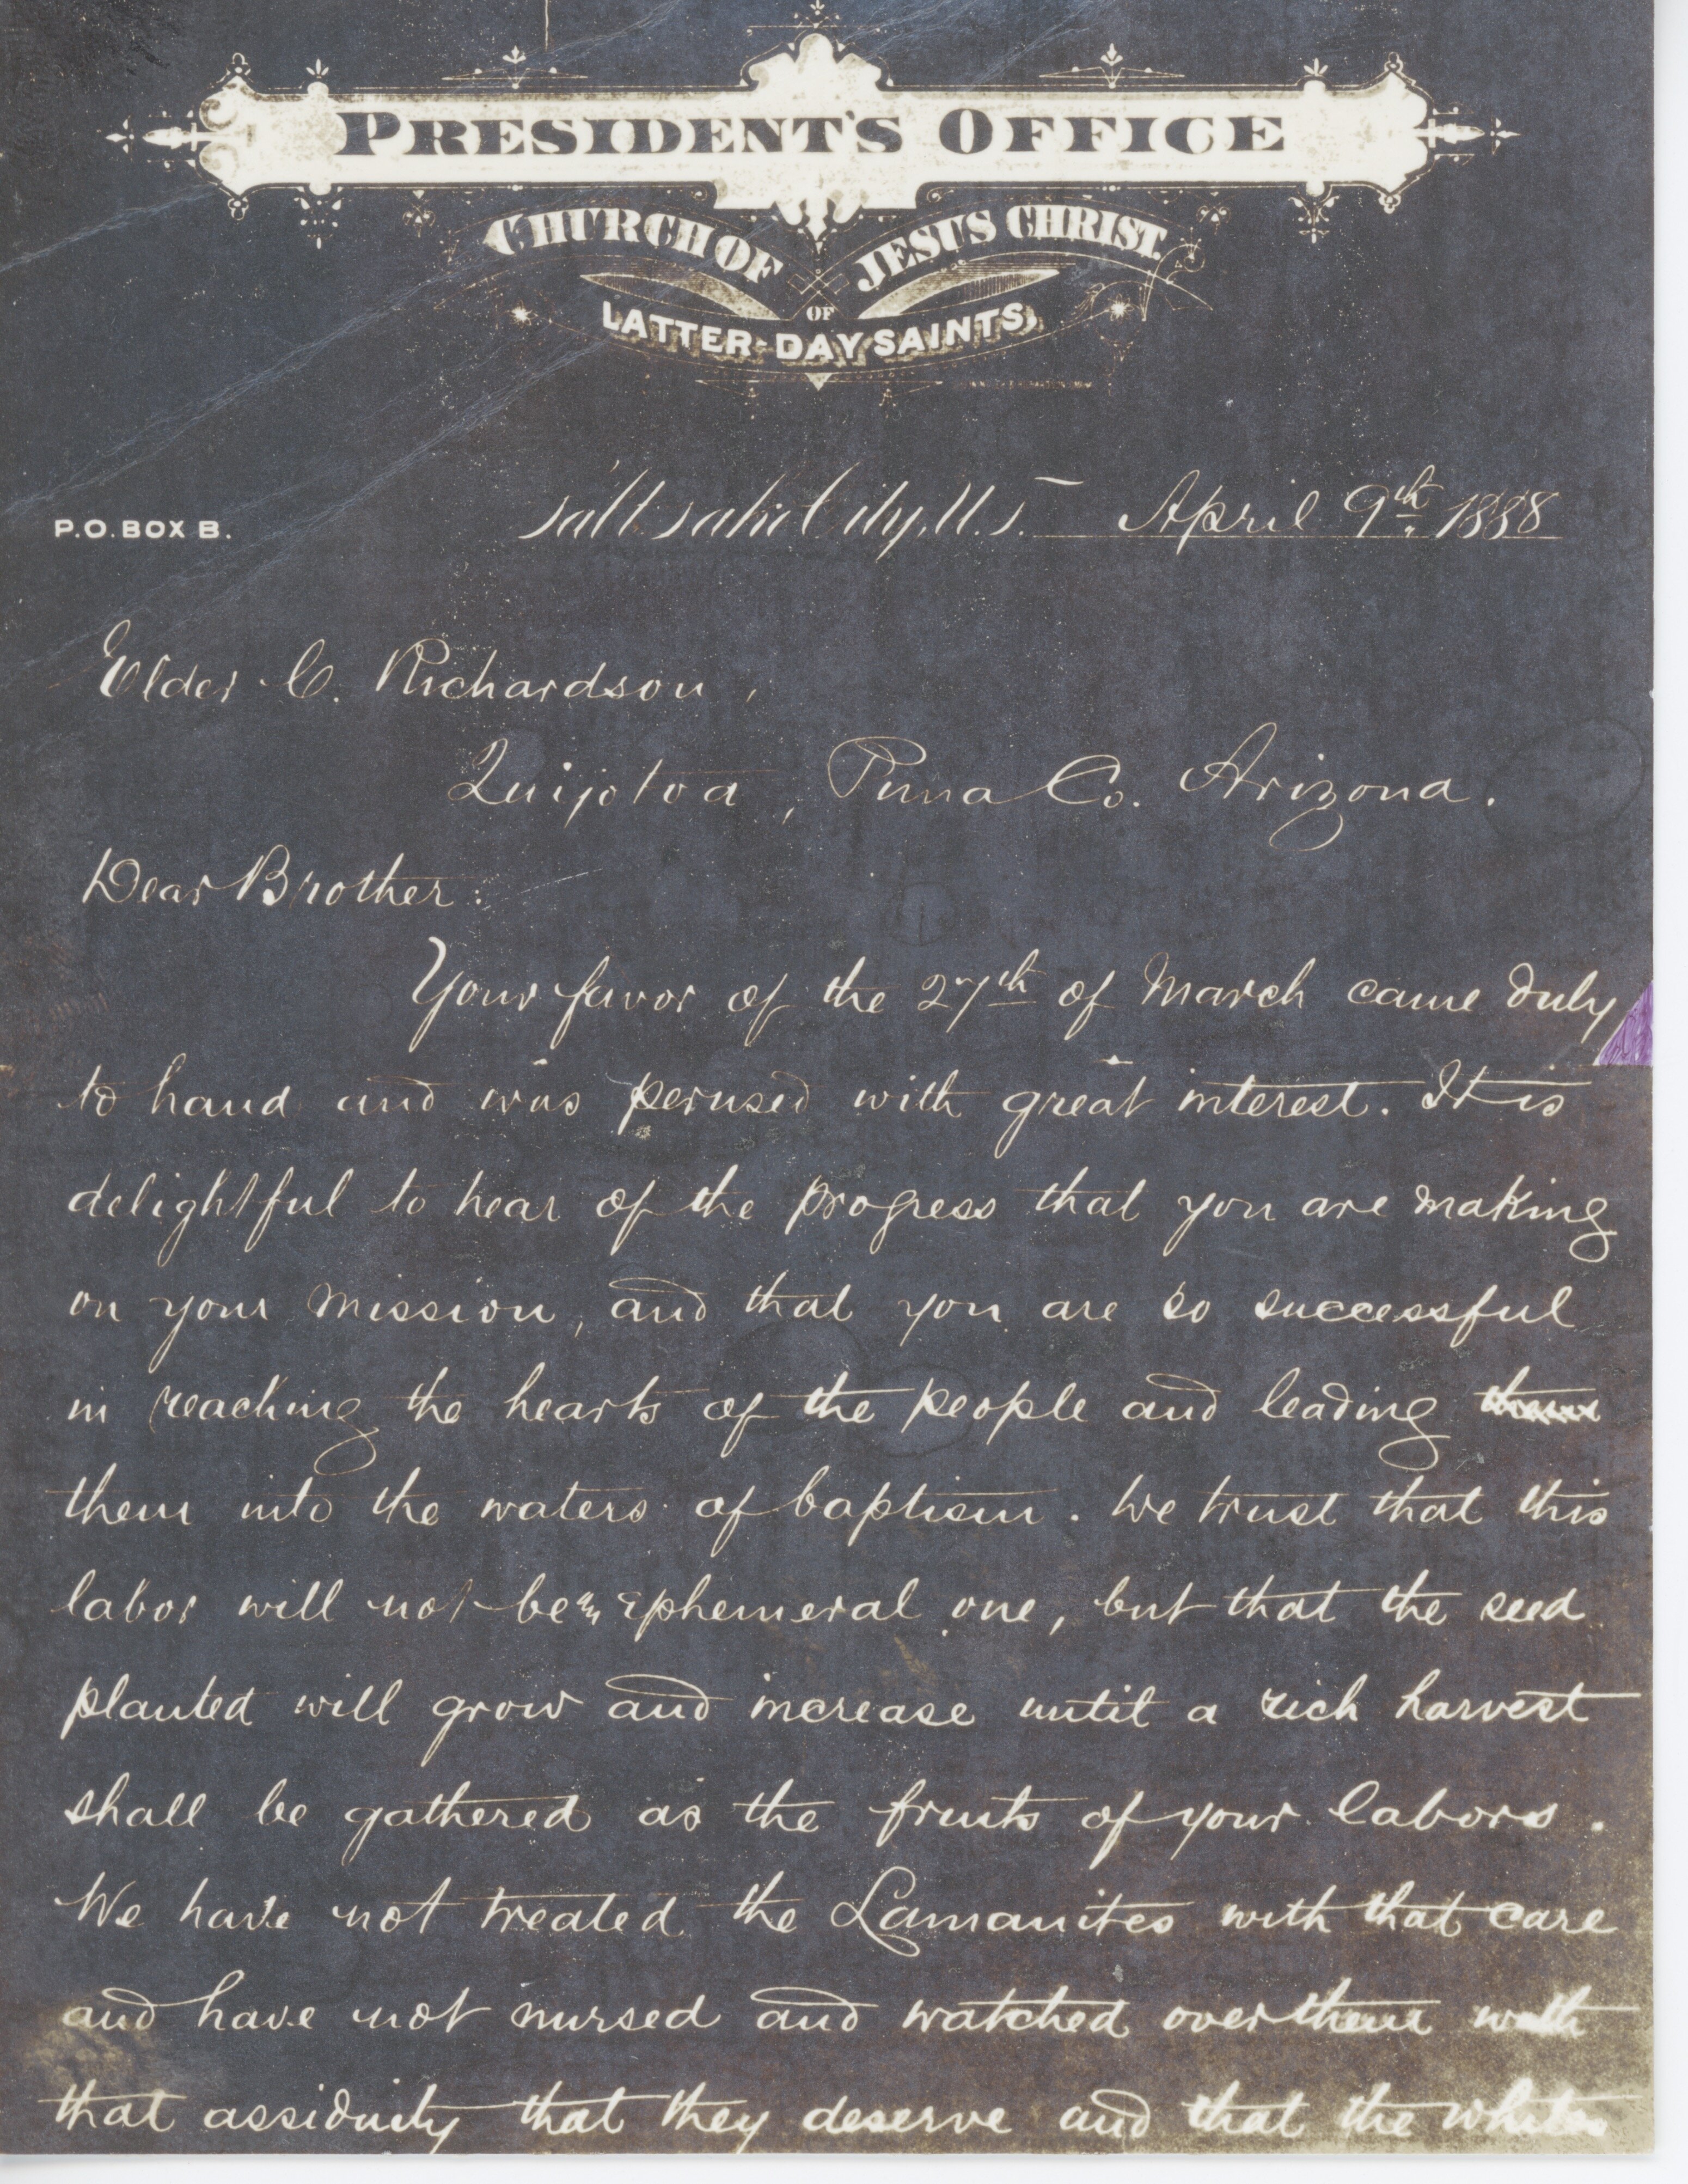 PRESIDENT'S OFFICE
CHURCH OF JESUS CHRIST
OF
LATTER-DAY SAINTS,
P.O. BOX B. Salt Lake City, U.T. April 9th 1888
Elder C. Richardson,
Quijotoa, Pima Co. Arizona.
Dear Brother:
Your favor of the 27th of March came duly
to hand and was perused with great interest. It is
delightful to hear of the progress that you are making
on your mission, and that you are so successful
in reaching the hearts of the people and leading
them into the waters of baptism. We trust that this
labor will not be an ephemeral one, but that the seed
planted will grow and increase until a rich harvest
shall be gathered as the fruits of your labors.
We have not treated the Lamanites with that care
and have not nursed and watched over them with
that assiduity that they deserve and that the whites